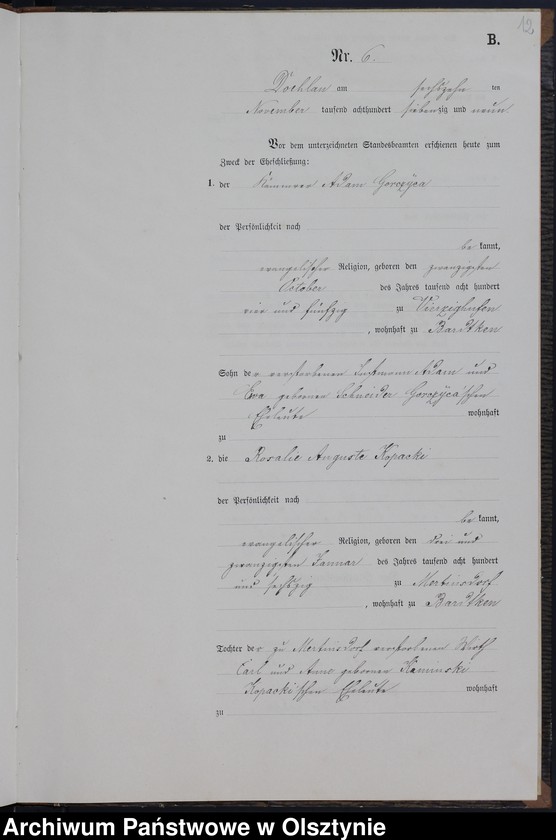 12
B.
Nr. 6.
Döhlau am sechszehn ten
November tausend achthundert siebenzig und neun
Vor dem unterzeichneten Standesbeamten erschienen heute zum
Zweck der Eheschließung:
1. der Kämmerer Adam Gorozyca
der Persönlichkeit nach
be kannt,
evangelischer Religion, geboren den zwanzigsten
October des Jahres tausend acht hundert
vier und fünfzig zu Vierzighufen
, wohnhaft zu Bardtken
Sohn der verstorbenen Instmann Adam und
Eva geborner Schneider Gorozyca'schen
Eheleute wohnhaft
zu
2. die Rosalie Auguste Kopacki
der Persönlichkeit nach
be kannt,
evangelischer Religion, geboren den drei und
zwanzigsten Januar des Jahres tausend acht hundert
und sechszig zu Mertinsdorf
, wohnhaft zu Bardtken
Tochter der zu Mertinsdorf verstorbenen Wirth
Carl und Anne geborner Kaminski
Kopacki'schen Eheleute wohnhaft
zu
Archiwum Państwowe w Olsztynie